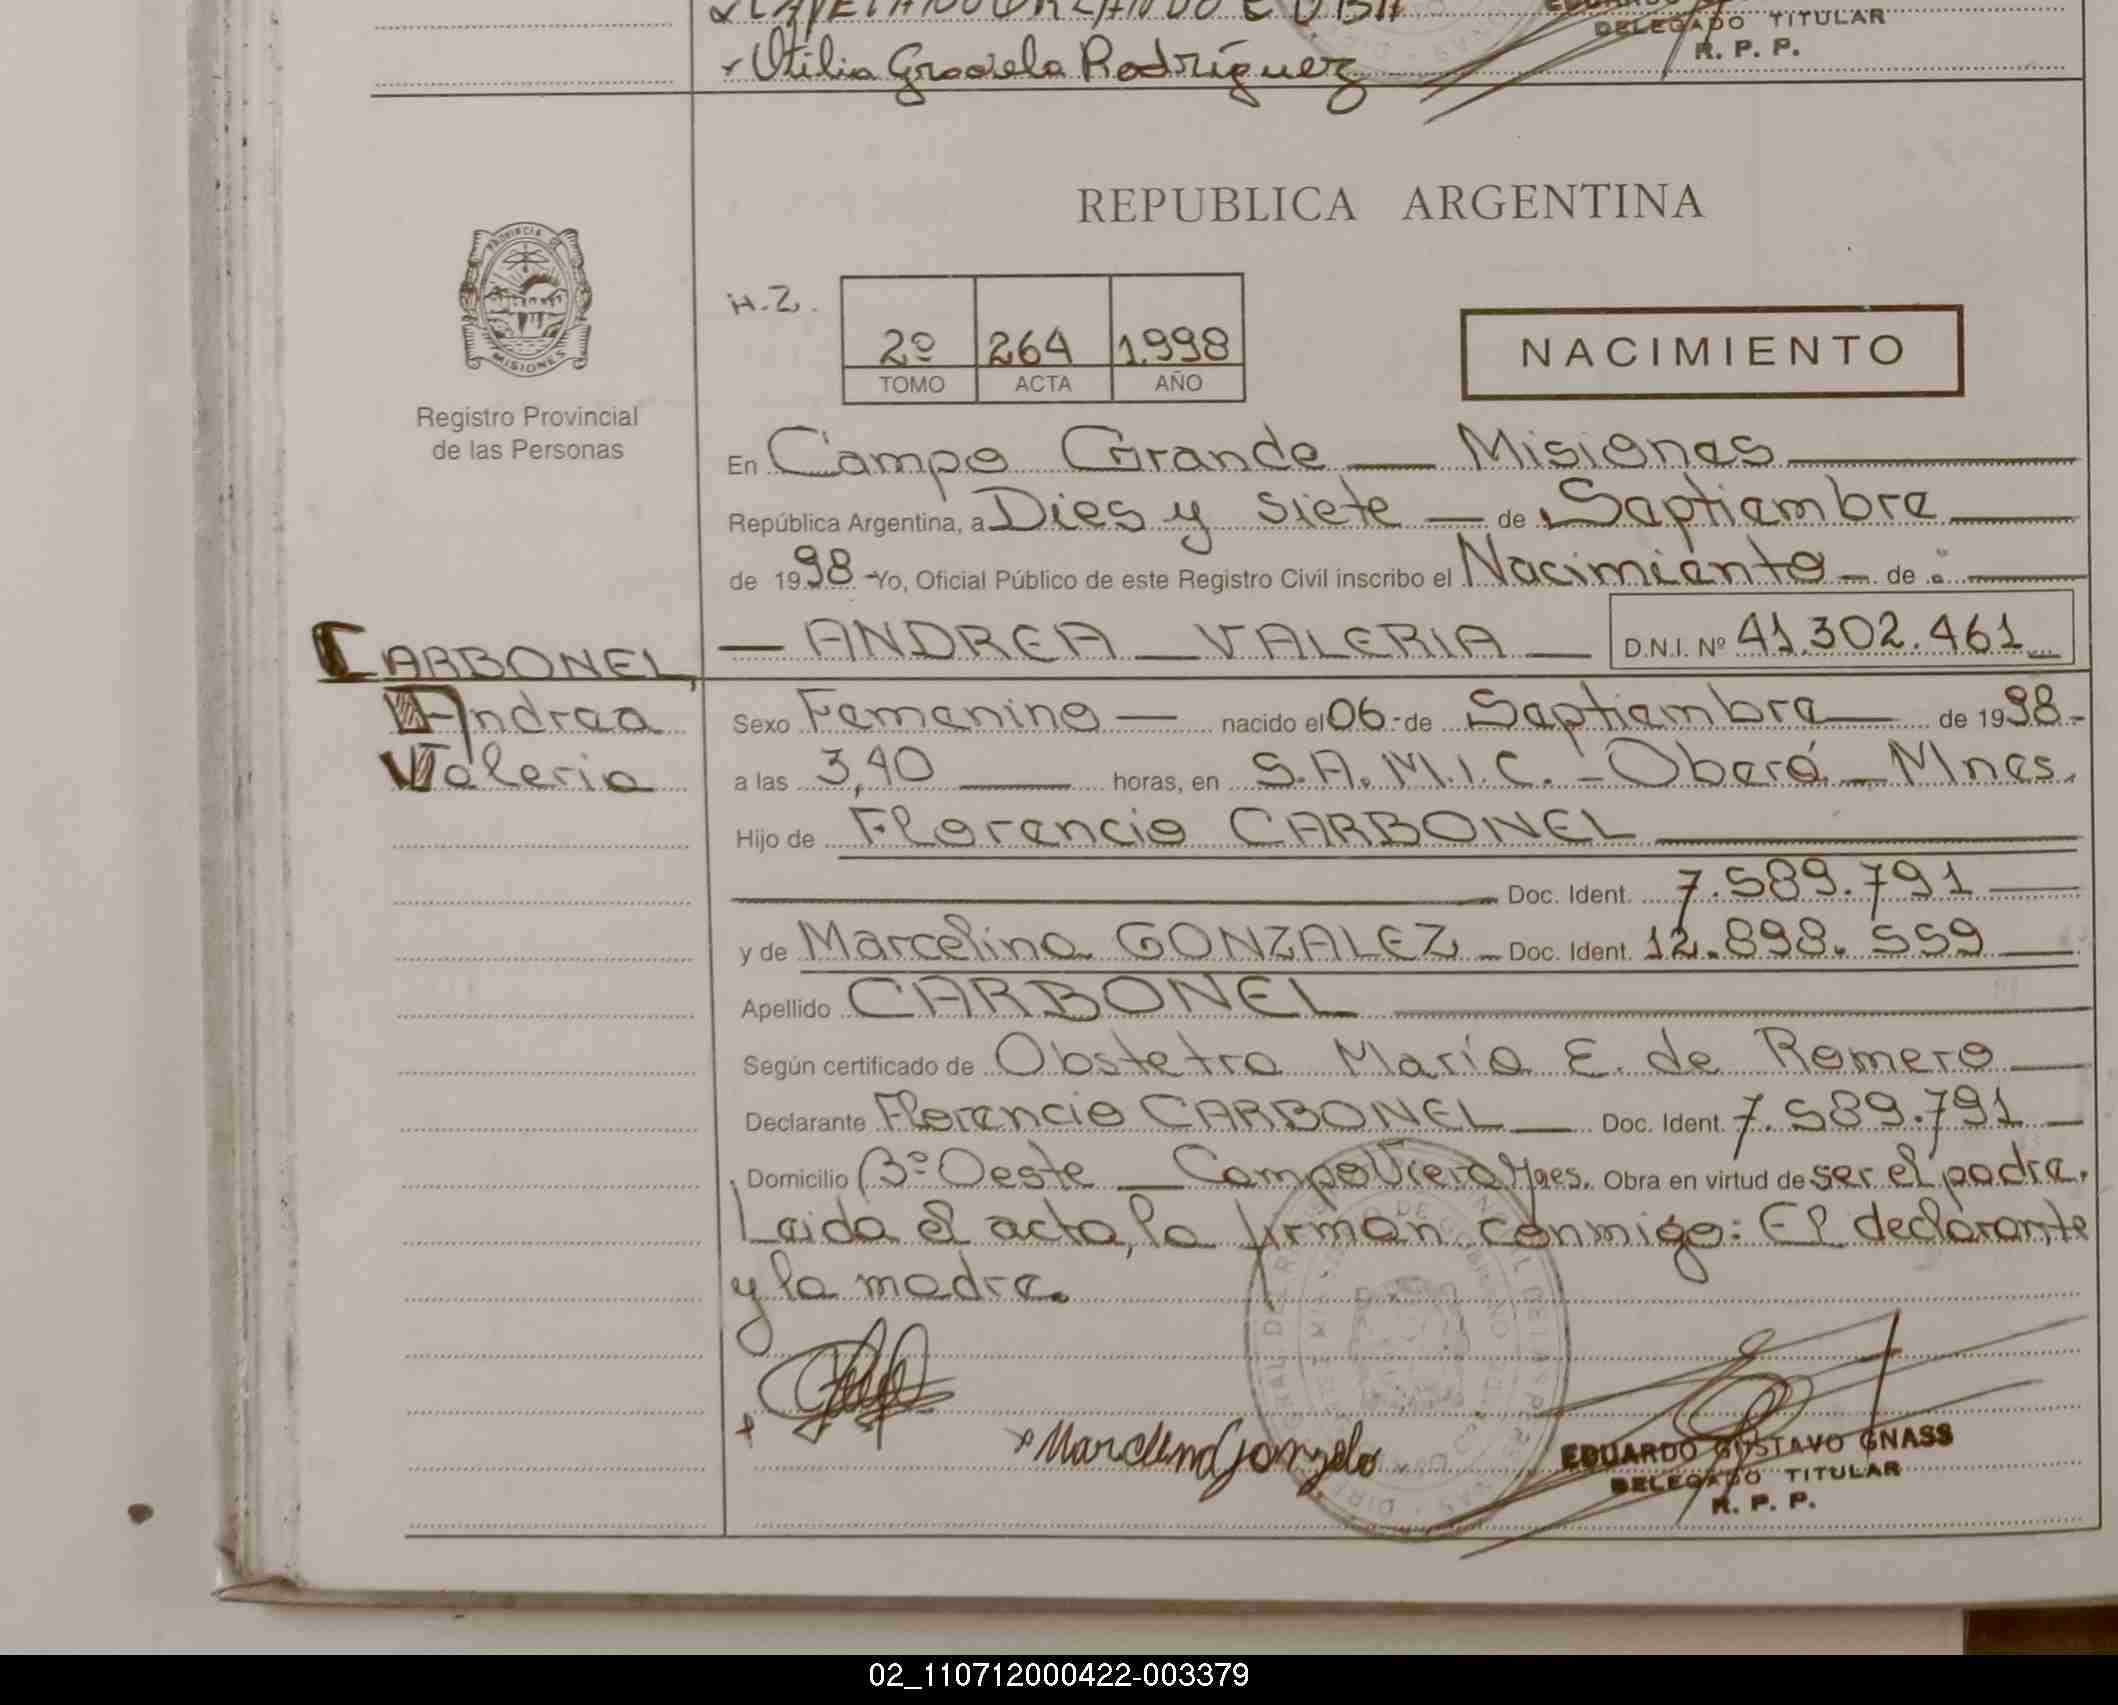 Utilia Graciela Rodríguez
DELEGADO TITULAR
R. P. P.
REPUBLICA ARGENTINA
PROVINCIA DE
MISIONES
Registro Provincial
de las Personas
H.Z.
2º 264 1.998
TOMO ACTA AÑO
NACIMIENTO
En Campo Grande — Misiones
República Argentina, a Dies y siete — de Septiembre
de 1998 - Yo, Oficial Público de este Registro Civil inscribo el Nacimiento - de :
— ANDREA VALERIA — D.N.I. Nº 41.302.461
CARBONEL,
Andrea
Valeria
Sexo Femenino — nacido el 06 - de Septiembre — de 1998 -
a las 3,40 — horas, en S.A.M.I.C. - Oberá - Mnes.
Hijo de Florencio CARBONEL
Doc. Ident. 7.589.791
y de Marcelina GONZALEZ - Doc. Ident. 12.898.559
Apellido CARBONEL
Según certificado de Obstetra María E. de Romero
Declarante Florencio CARBONEL — Doc. Ident. 7.589.791
Domicilio Bº Oeste — Campo Viera Mnes. Obra en virtud de ser el padre.
Leida el acta, la firman conmigo: El declarante
y la madre.
EDUARDO GUSTAVO GNASS
DELEGADO TITULAR
R. P. P.
02_110712000422-003379